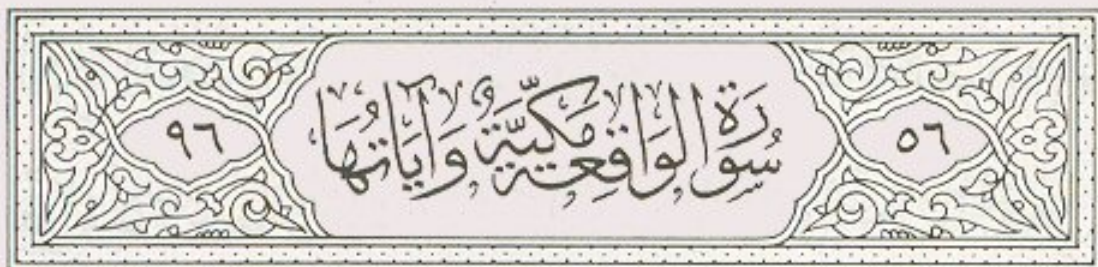 ٥٦
سُورَةُ الوَاقِعَةِ مَكِّيَّةٌ وَآيَاتُهَا
٩٦